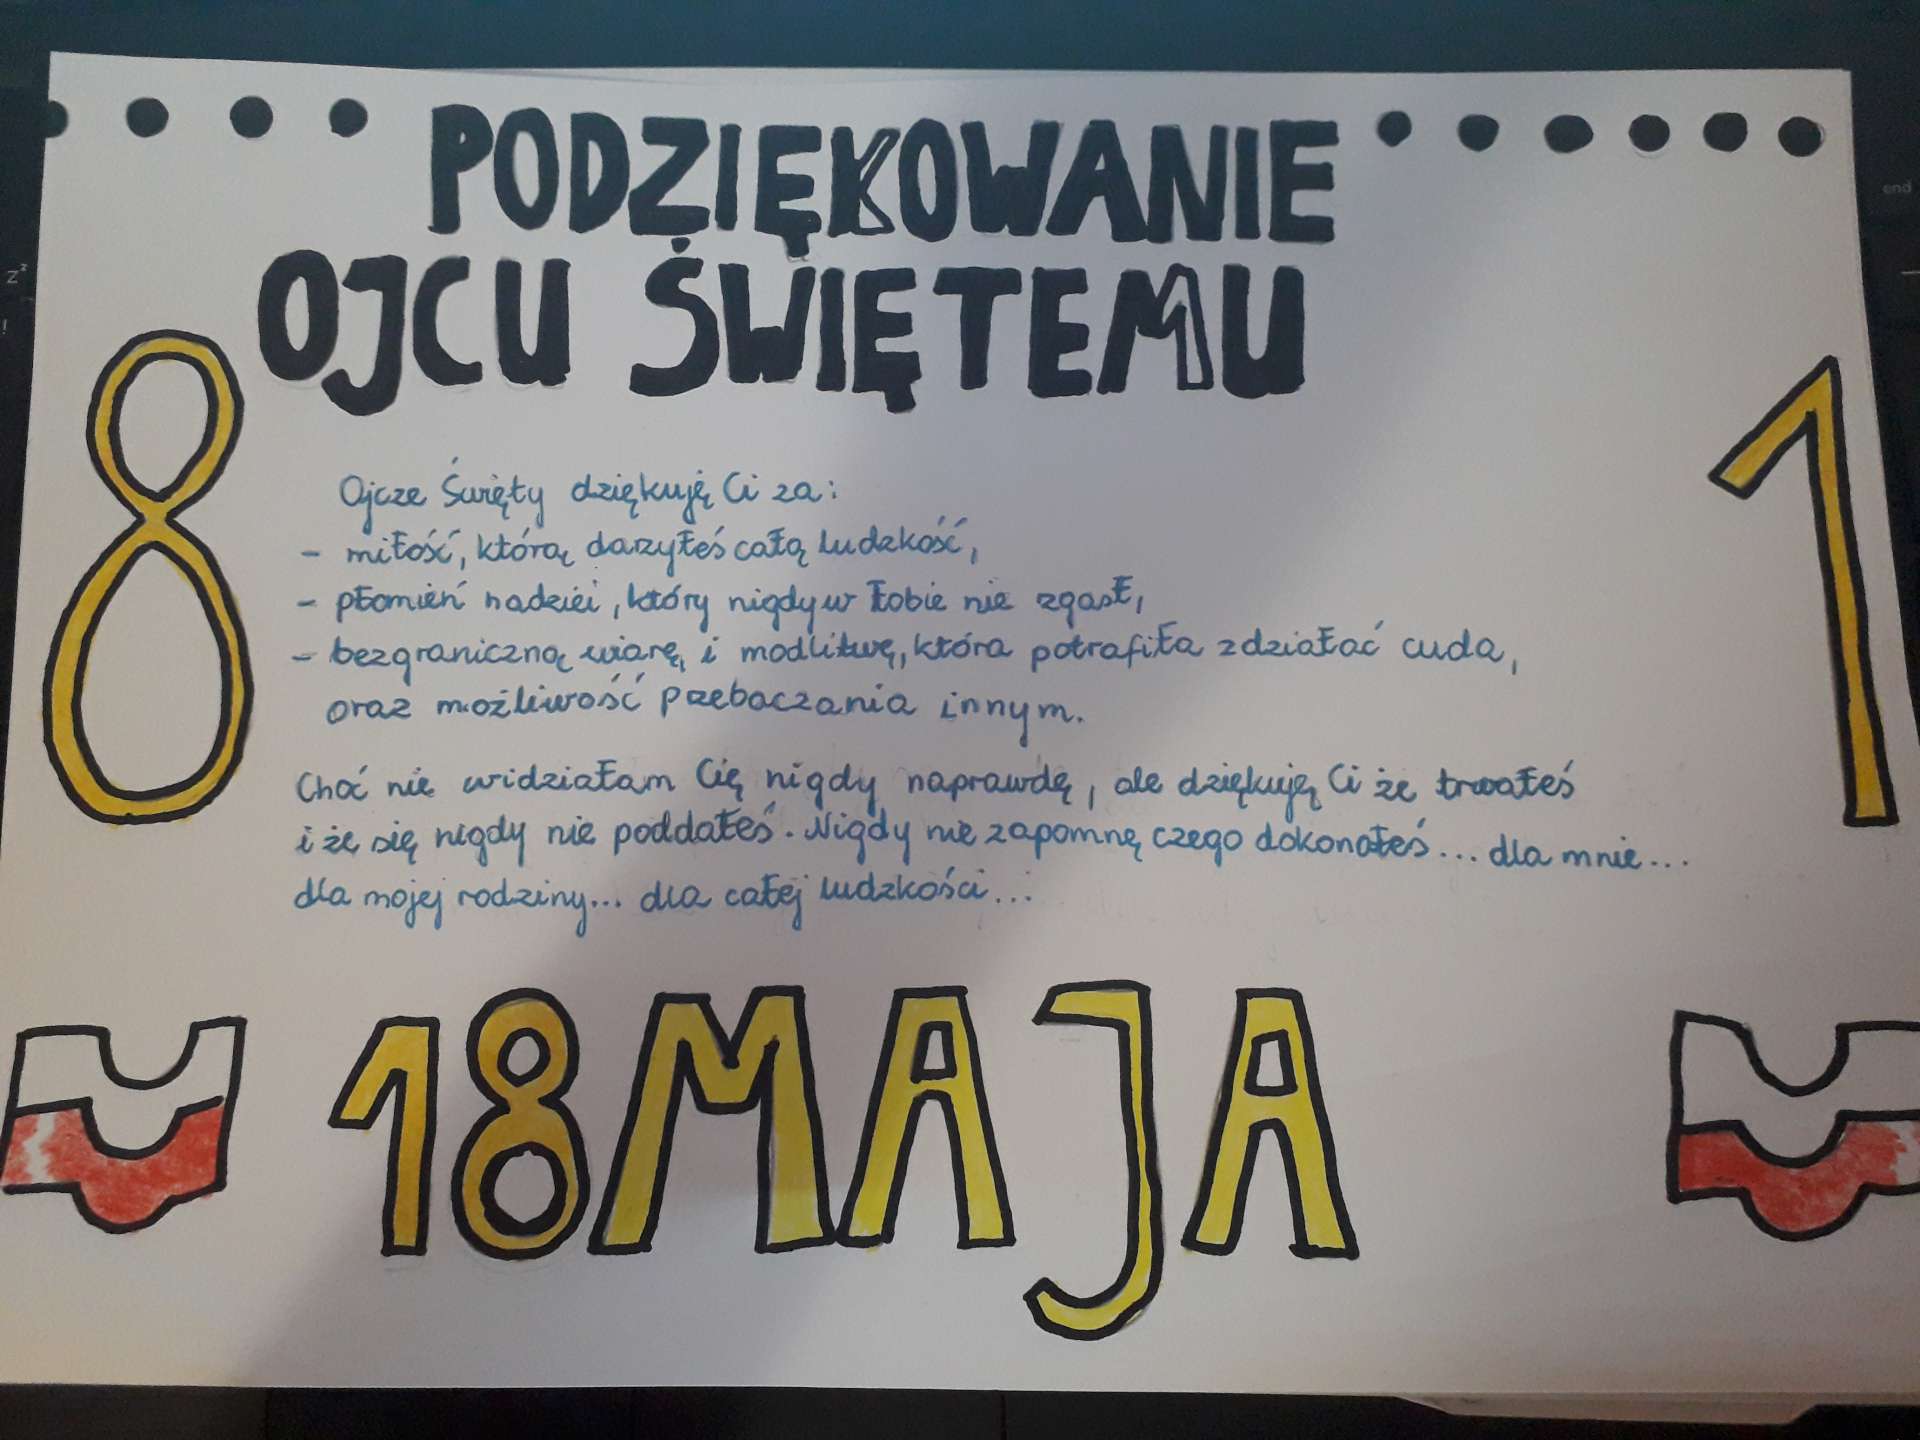 PODZIĘKOWANIE
OJCU ŚWIĘTEMU
8
1
Ojcze Święty dziękuję Ci za:
- miłość, którą darzyłeś całą ludzkość,
- płomień nadziei, który nigdy w Tobie nie zgasł,
- bezgraniczną wiarę, i modlitwę, która potrafiła zdziałać cuda,
oraz możliwość przebaczania innym.
Choć nie widziałam Cię nigdy naprawdę, ale dziękuję Ci że trwałeś
i że się nigdy nie poddałeś. Nigdy nie zapomnę czego dokonałeś... dla mnie...
dla mojej rodziny... dla całej ludzkości...
18 MAJA